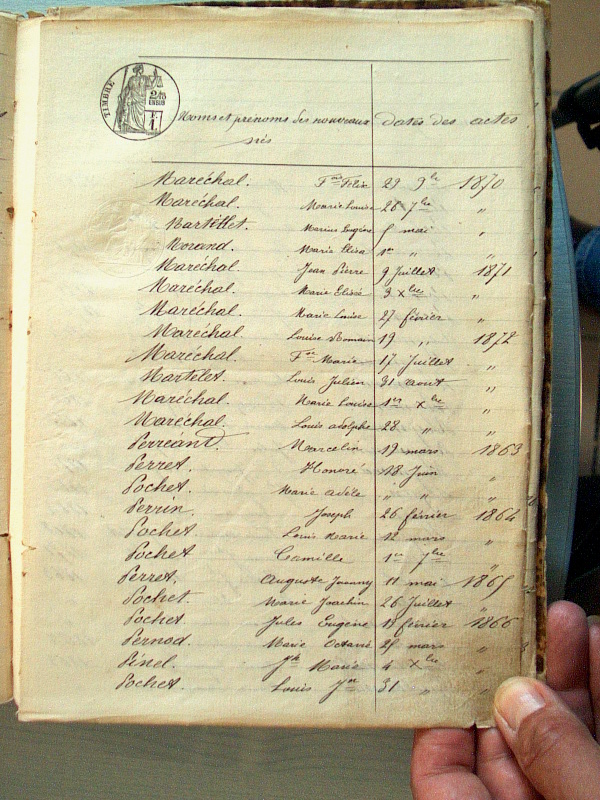 TIMBRE
Noms et prénoms des nouveaux dates des actes
nés
Maréchal. Fois Felix 29 9bre 1870
Maréchal. Marie Louise 26 7bre "
Martellet. Marius Eugène mai "
Morand. Marie Elisa 1er " "
Maréchal. Jean Pierre 9 Juillet 1871
Maréchal. Marie Elisée 3 Xbre "
Maréchal. Marie Louise 27 février "
Maréchal. Louise Romain 19 " 1872
Maréchal. Fois Marie 17 Juillet "
Martelet. Louis Julien 31 aout "
Maréchal. Marie Louise 1er Xbre "
Maréchal. Louis adolphe 28 " "
Perreant. Marcelin 19 mars 1863
Perret. Honoré 18 Juin "
Pochet. Marie adèle " " "
Perrin. Joseph 26 février 1864
Pochet. Louis Marie 12 mars "
Pochet Camille 1er 7bre "
Perret. Auguste Joanny 11 mai 1865
Pochet. Marie Joachin 26 Juillet "
Pochet. Jules Eugène février 1866
Pernod. Marie Octavie mars "
Pinel. Jph Marie 4 Xbre "
Pochet. Louis Jph 31 " "